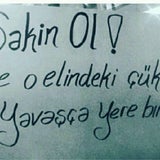 Sakin Ol!
e o elindeki çük
Yavaşça yere bır